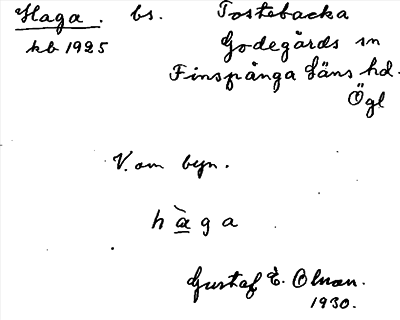 Haga. bs. Tostebacka
kb 1925 Godegårds sn
Finspånga läns hd.
Ögl
V. om byn.
hàga
Gustaf E. Olsson.
1930.